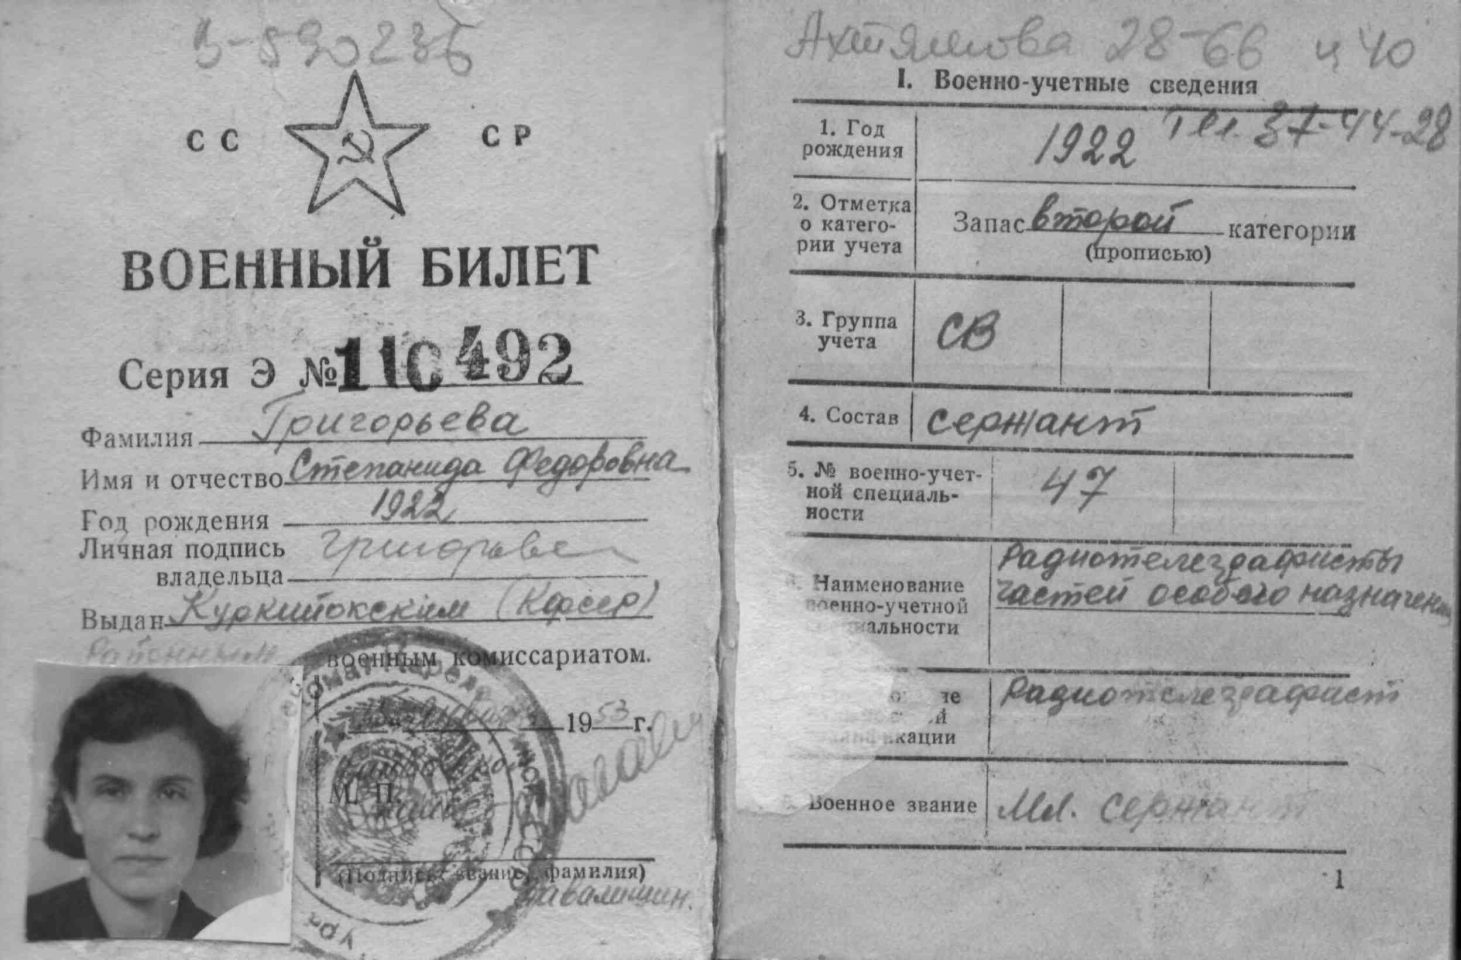 З-590236
СС СР
ВОЕННЫЙ БИЛЕТ
Серия Э № 110492
Фамилия Григорьева
Имя и отчество Степанида Федоровна
Год рождения 1922
Личная подпись Григорьева
владельца
Выдан Куркийокским (Кфсср)
Районным военным комиссариатом.
1953 г.
М. П.
(Подпись, звание, фамилия)
Ахтямова 28-66 ц 40
I. Военно-учетные сведения
Тел. 37-44-28
1. Год
рождения
1922
2. Отметка
о катего-
рии учета
Запас второй категории
(прописью)
3. Группа
учета
СВ
4. Состав
сержант
5. № военно-учет-
ной специаль-
ности
47
Наименование
военно-учетной
специальности
Радиотелеграфисты
частей особого назначения
кации
Радиотелеграфист
Военное звание
Мл. сержант
1